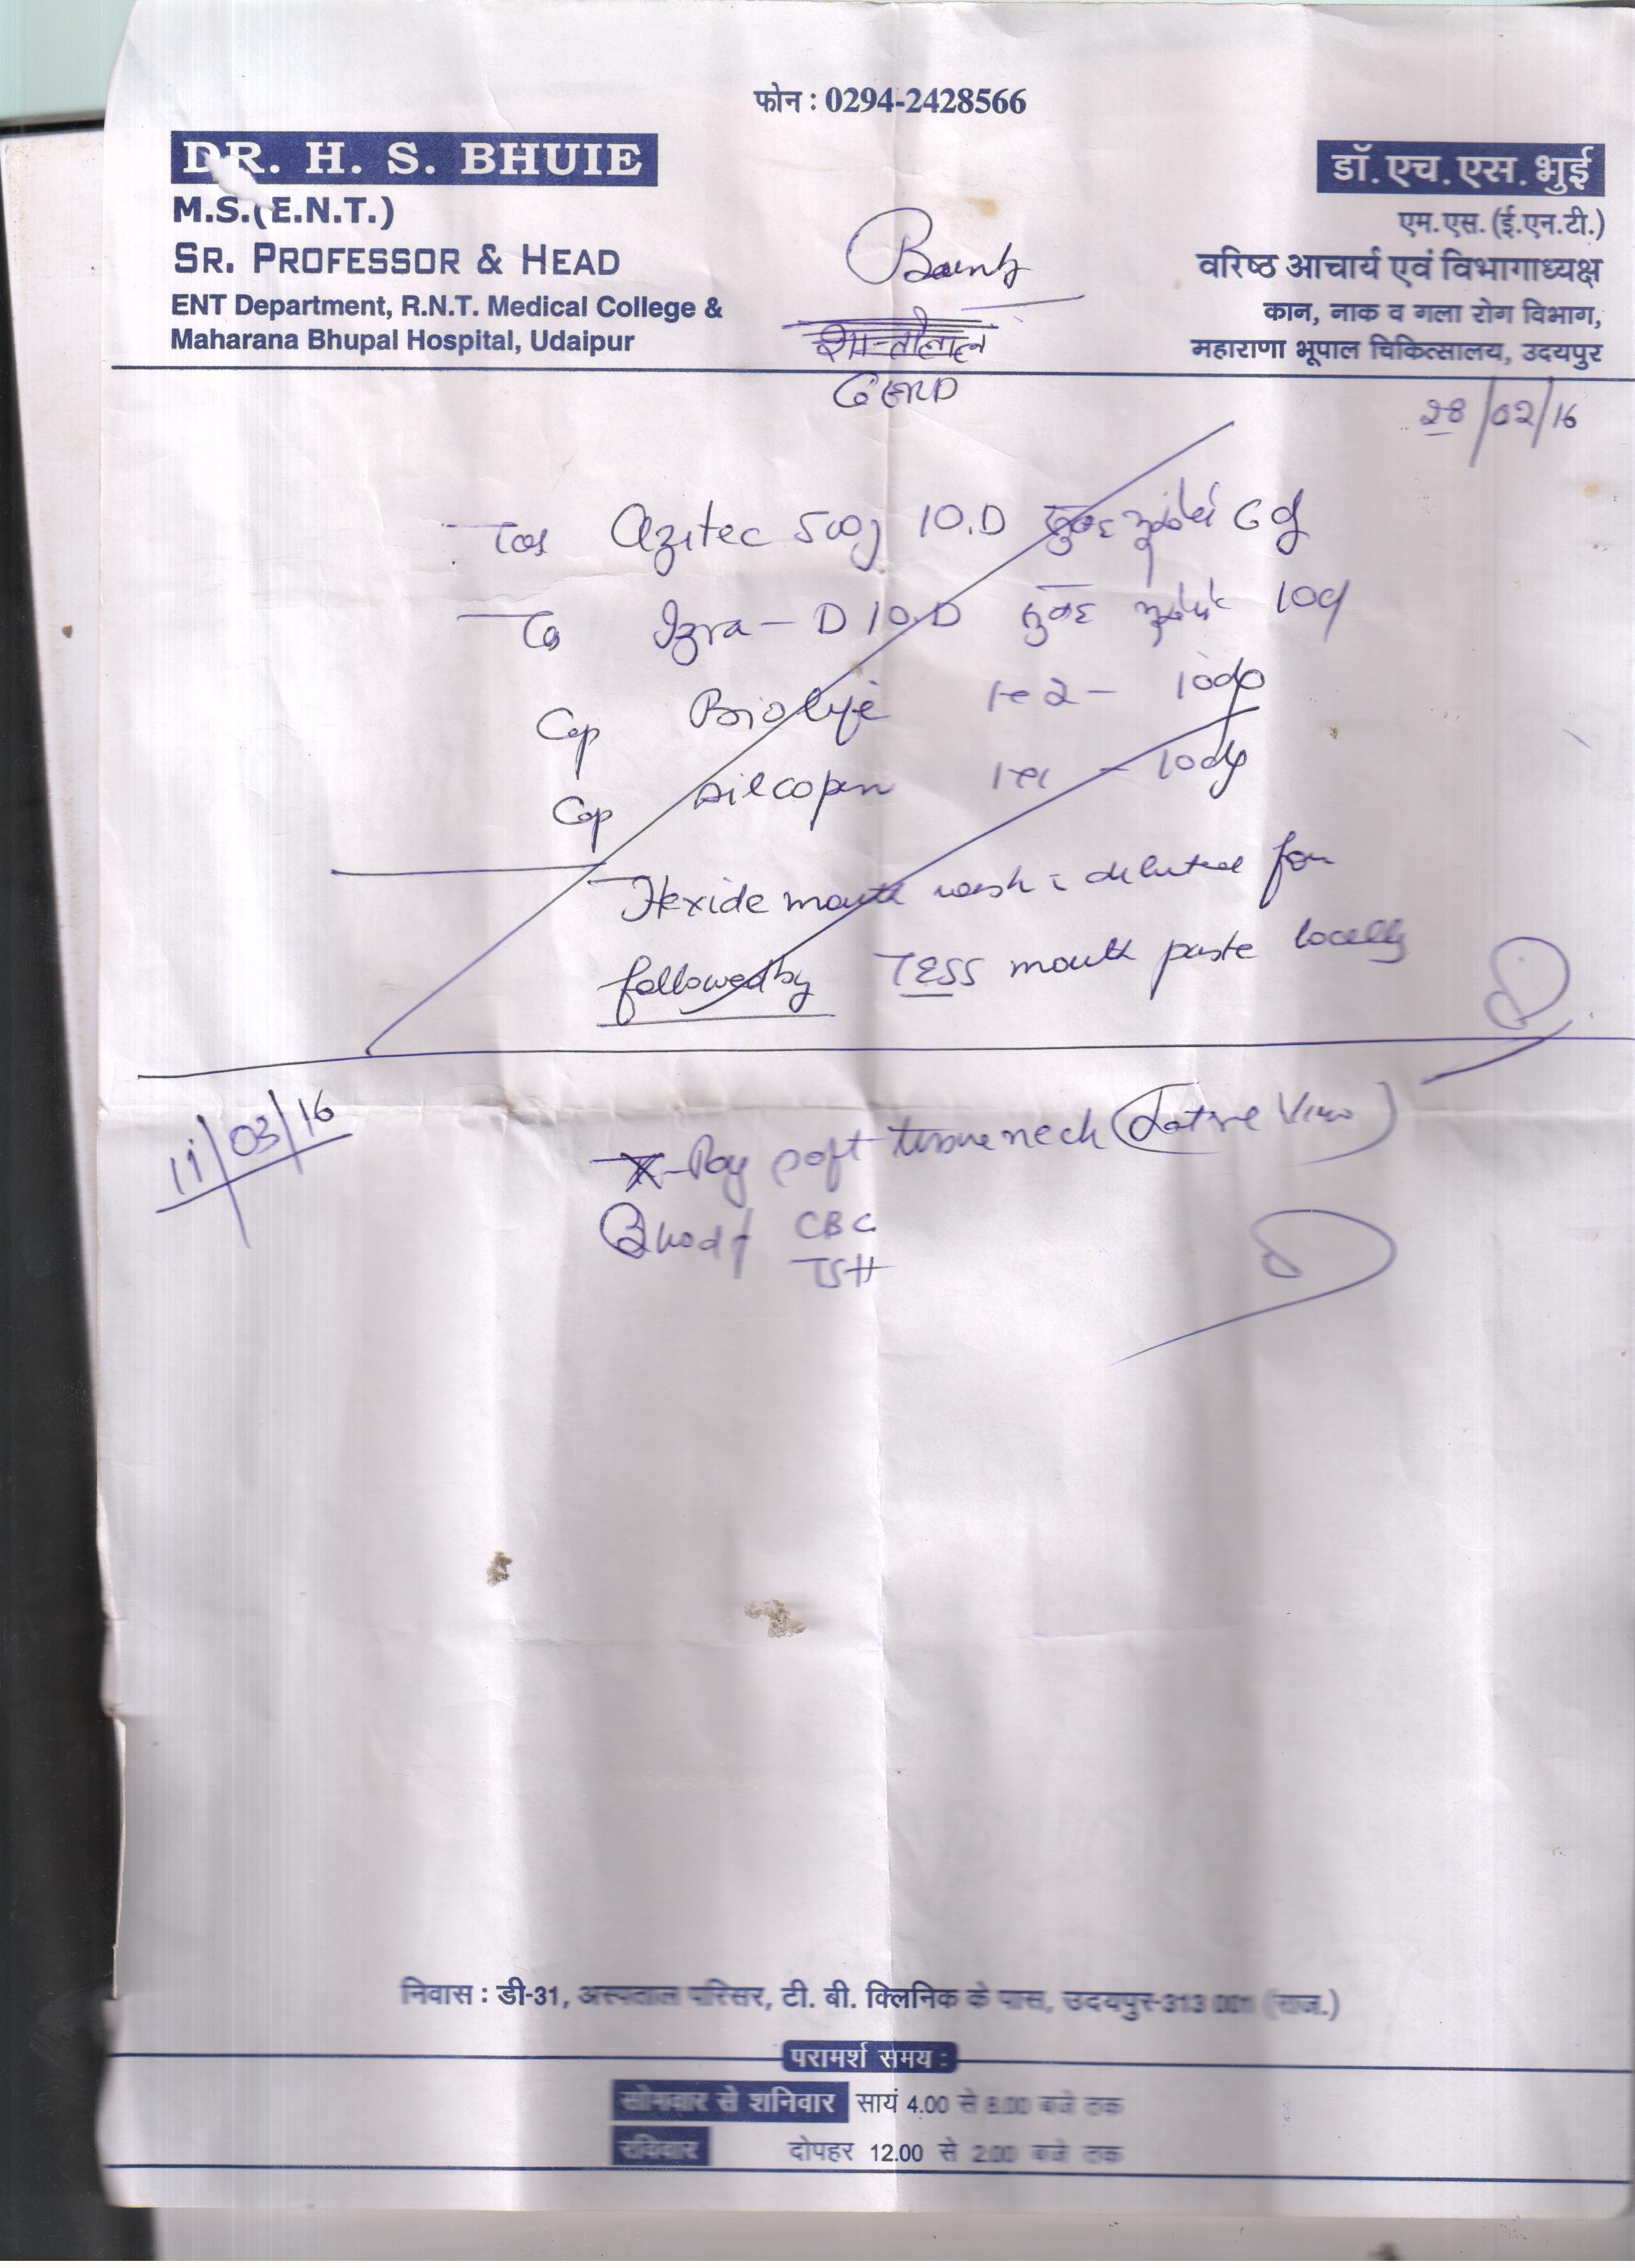 फोन : 0294-2428566
DR. H. S. BHUIE
M.S.(E.N.T.)
SR. PROFESSOR & HEAD
ENT Department, R.N.T. Medical College &
Maharana Bhupal Hospital, Udaipur
डॉ. एच. एस. भुई
एम. एस. (ई.एन.टी.)
वरिष्ठ आचार्य एवं विभागाध्यक्ष
कान, नाक व गला रोग विभाग,
महाराणा भूपाल चिकित्सालय, उदयपुर
GERD
28/02/16
Azitec 500 10.D
Izra-D 10.D
Cap Biolife 10
Cap silcopen 10
Hexide mouth wash diluted for
followed by TESS mouth paste locally
11/03/16
X-Ray soft tissue neck
Blood CBC
TSH
निवास : डी-31, अस्पताल परिसर, टी. बी. क्लिनिक के पास, उदयपुर-313 001 (राज.)
परामर्श समय :
सोमवार से शनिवार सायं 4.00 से 8.00 बजे तक
रविवार दोपहर 12.00 से 2.00 बजे तक